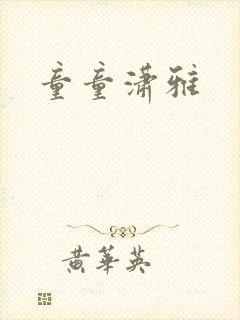 童童潇雅
黄华英